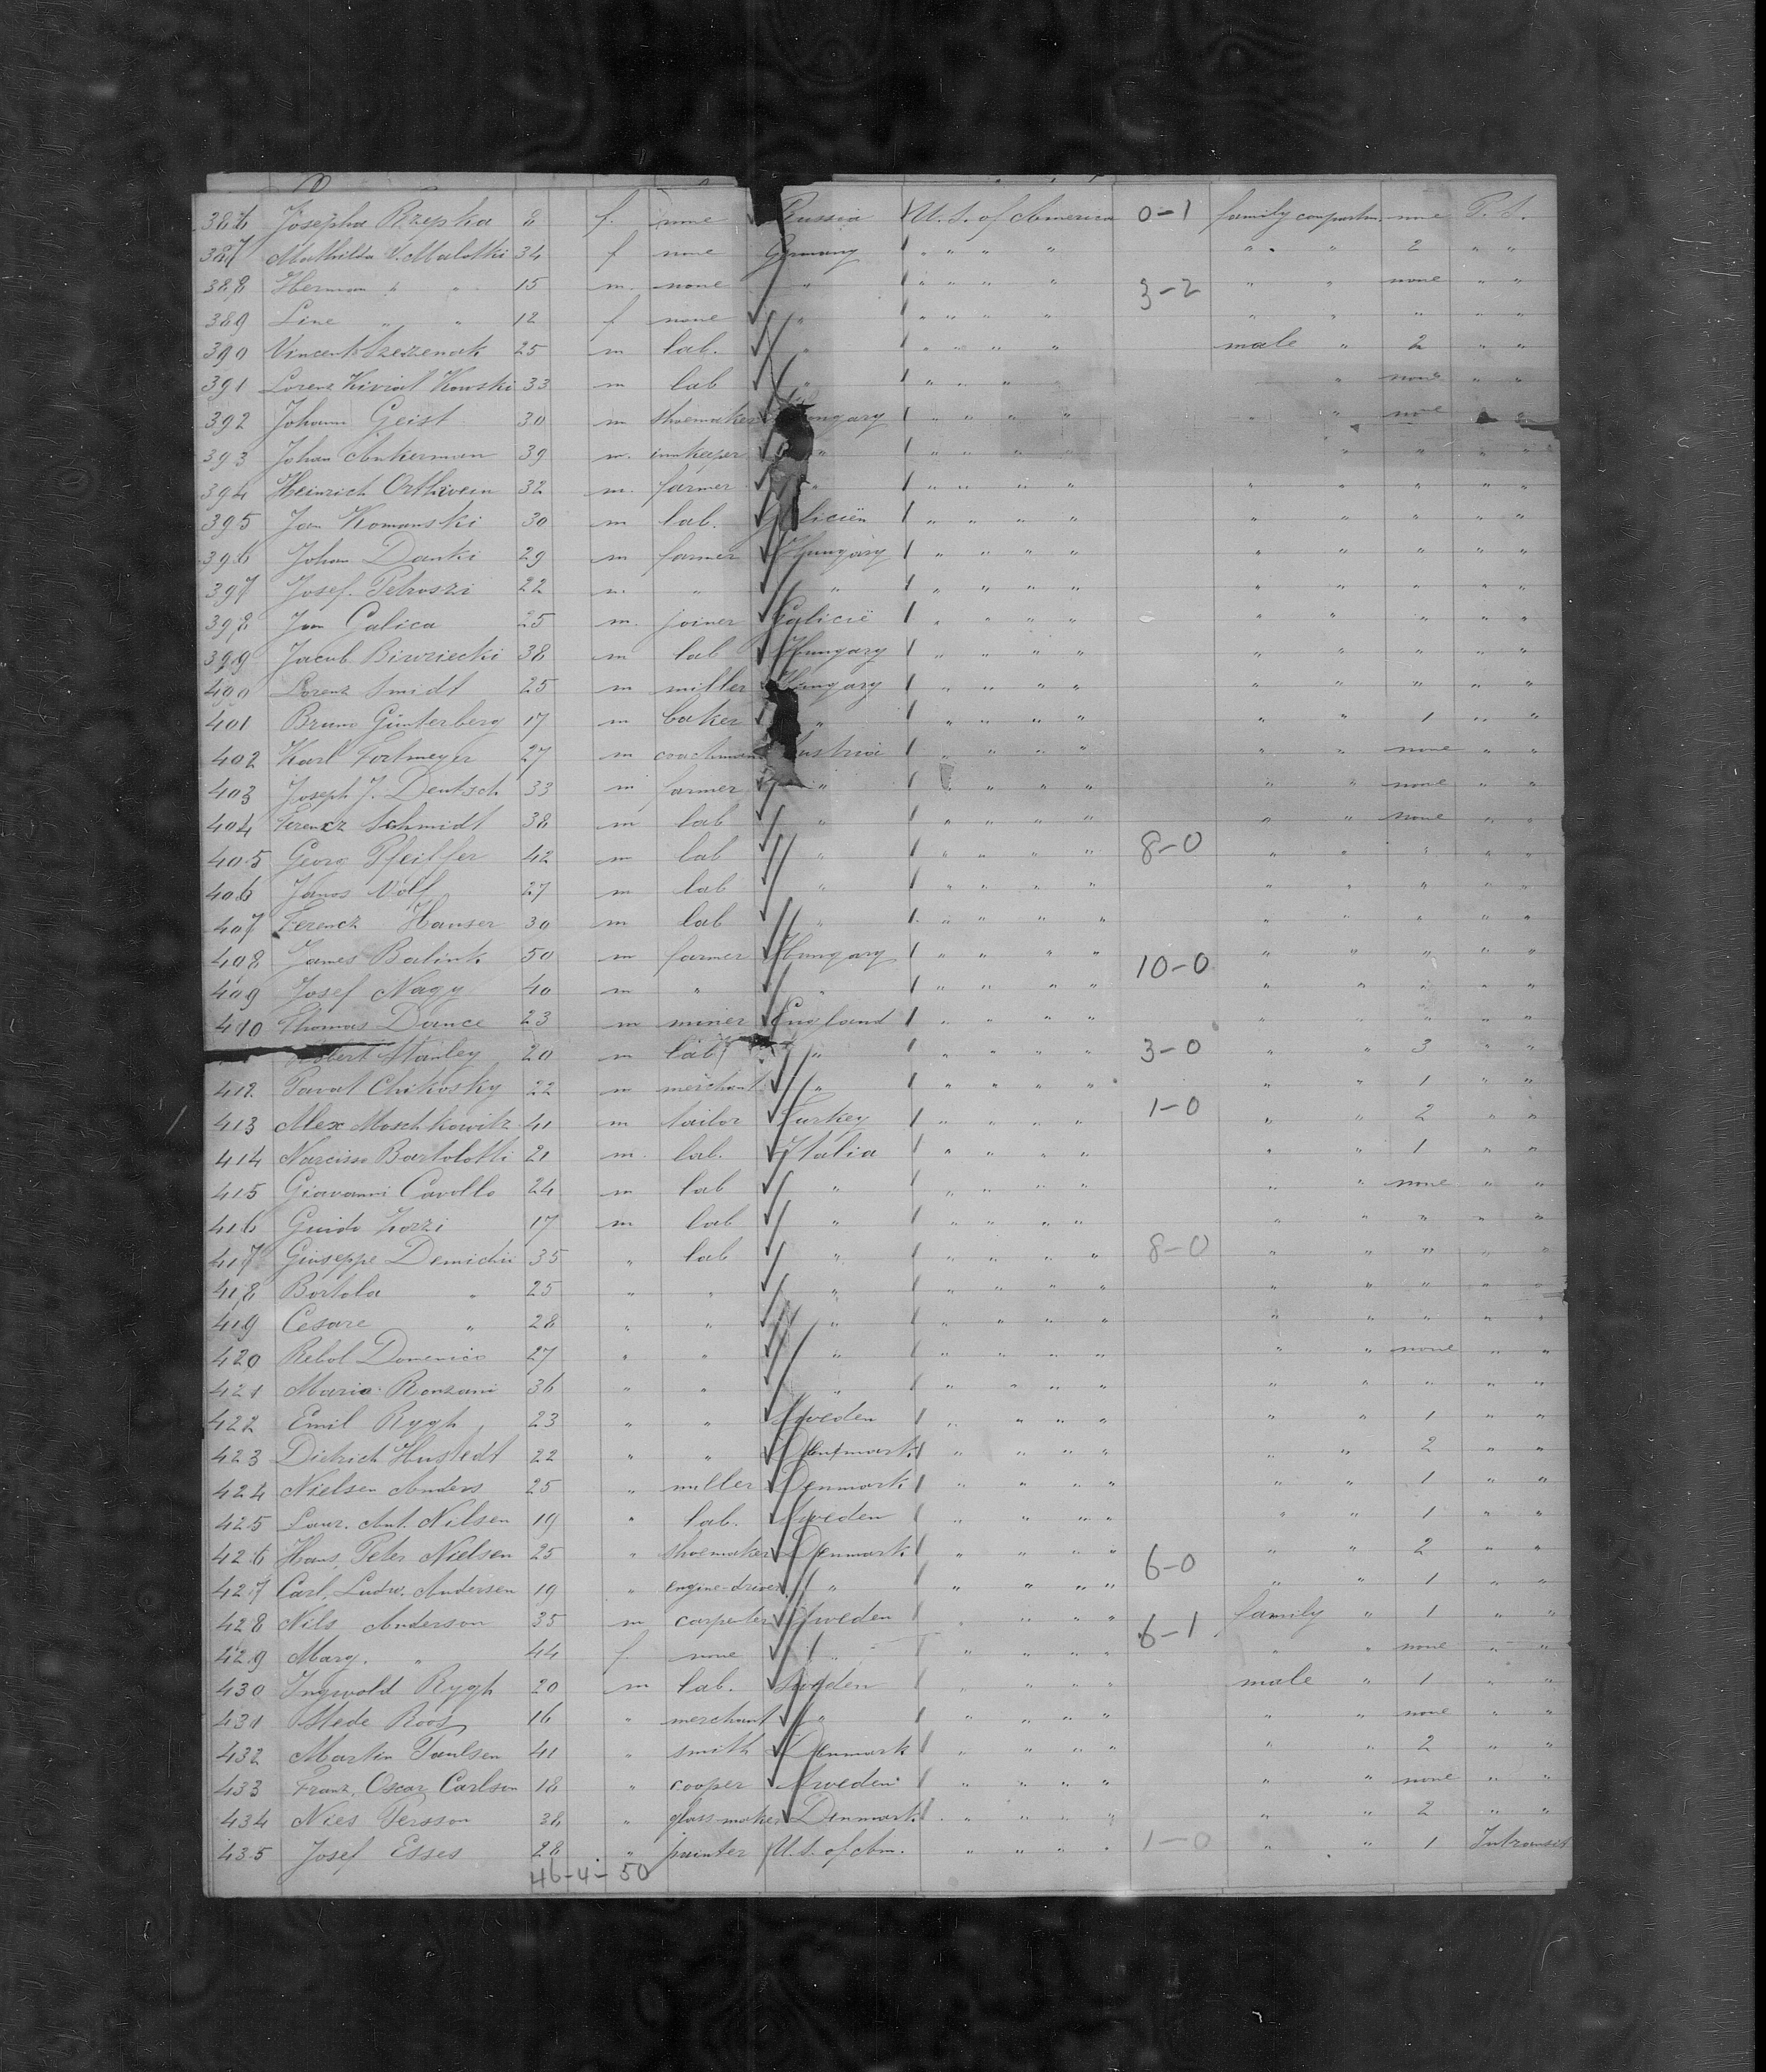 386 Josepha Rzepka 8 f. none Russia U. S. of America 0-1 family compartm. none P. S.
387 Mathilda V. Malotki 34 f none Germany " " " " " " 2 " "
388 Herman " " 15 m. none " " " " " 3-2 " " none " "
389 Line " " 12 f none " " " " " " " " " "
390 Vincent Szezenak 25 m lab. " " " " " male " 2 " "
391 Lorenz Kiviat Kowski 33 m lab " " " " " none " "
392 Johann Geist 30 m shoemaker ongary " " " " " " none
393 Johan Ankerman 39 m. innkeeper " " " " " " " " "
394 Heinrich Orthwein 32 m. farmer " " " " " " " " " "
395 Jan Komanski 30 m lab. liciën " " " " " " " " "
396 Johan Danki 29 m farmer Hungary " " " " " " " " "
397 Josef Petroszi 22 m. " " " " " " " " " " "
398 Jan Galica 25 m. joiner Galicië " " " " " " " " "
399 Jacub Birziecki 38 m lab Hungary " " " " " " " " "
400 Lorenz Smidt 25 m miller Hungary " " " " " " " " "
401 Bruno Günterberg 17 m baker " " " " " " " 1 " "
402 Karl Fortmeyer 27 m coachman ustria " " " " " " none " "
403 Joseph J. Deutsch 33 m farmer " " " " " " none " "
404 Ferencz Schmidt 38 m lab " " " " " " " none " "
405 Georg Pfeiffer 42 m lab " " " " " 8-0 " " " " "
406 Janos Wolf 27 m lab " " " " " " " " " "
407 Ferencz Hauser 30 m lab " " " " " " " " " "
408 James Balink 50 m farmer Hungary " " " " 10-0 " " " " "
409 Josef Nagy 40 m " " " " " " " " " " "
410 Thomas Dance 23 m miner England " " " " " " " " "
bert Stanley 20 m lab " " " " " 3-0 " " 3 " "
412. Paval Chikosky 22 m merchant " " " " " " " 1 " "
413 Alex Moschkowitz 41 m tailor Turkey " " " " 1-0 " " 2 " "
414 Narcisso Bartolotti 21 m. lab. Italia " " " " " " 1 " "
415 Giavanni Cavollo 24 m lab " " " " " " " none " "
416 Guido Zorzi 17 m lab " " " " " " " " " "
417 Giuseppe Demichii 35 " lab " " " " " 8-0 " " " " "
418 Bortola " 25 " " " " " " " " " " " "
419 Cesare " 28 " " " " " " " " " " " "
420 Rebol Domenico 27 " " " " " " " " " none " "
421 Maria Ronzani 36 " " " " " " " " " " " "
422 Emil Rygh 23 " " Sweden " " " " " " 1 " "
423 Dietrich Hustedt 22 " " Denmark " " " " " " 2 " "
424 Nielsen Anders 25 " miller Denmark " " " " " " 1 " "
425 Laur. Ant. Nilsen 19 " lab. Sweden " " " " " " 1 " "
426 Hans Peter Nielsen 25 " shoemaker Denmark " " " " 6-0 " " 2 " "
427 Carl. Ludw. Andersen 19 " engine-driver " " " " " " " 1 " "
428 Nils Anderson 35 m carpenter Sweden " " " 6-1 family " 1 " "
429 Marg. " 44 f. none " " " " " " " none " "
430 Ingwold Rygh 20 m lab. Sweden " " " " male " 1 " "
431 Stede Roos 16 " merchant " " " " " " " none " "
432 Martin Paulsen 41 " smith Denmark " " " " " " 2 " "
433 Franz. Oscar Carlson 18 " cooper Sweden " " " " " " none " "
434 Nies Persson 38 " glass-maker Denmark " " " " " " 2 " "
435 Josef Esses 28 " painter U. S. of Am. " " " " 1-0 " " 1 Intransit
46-4-50